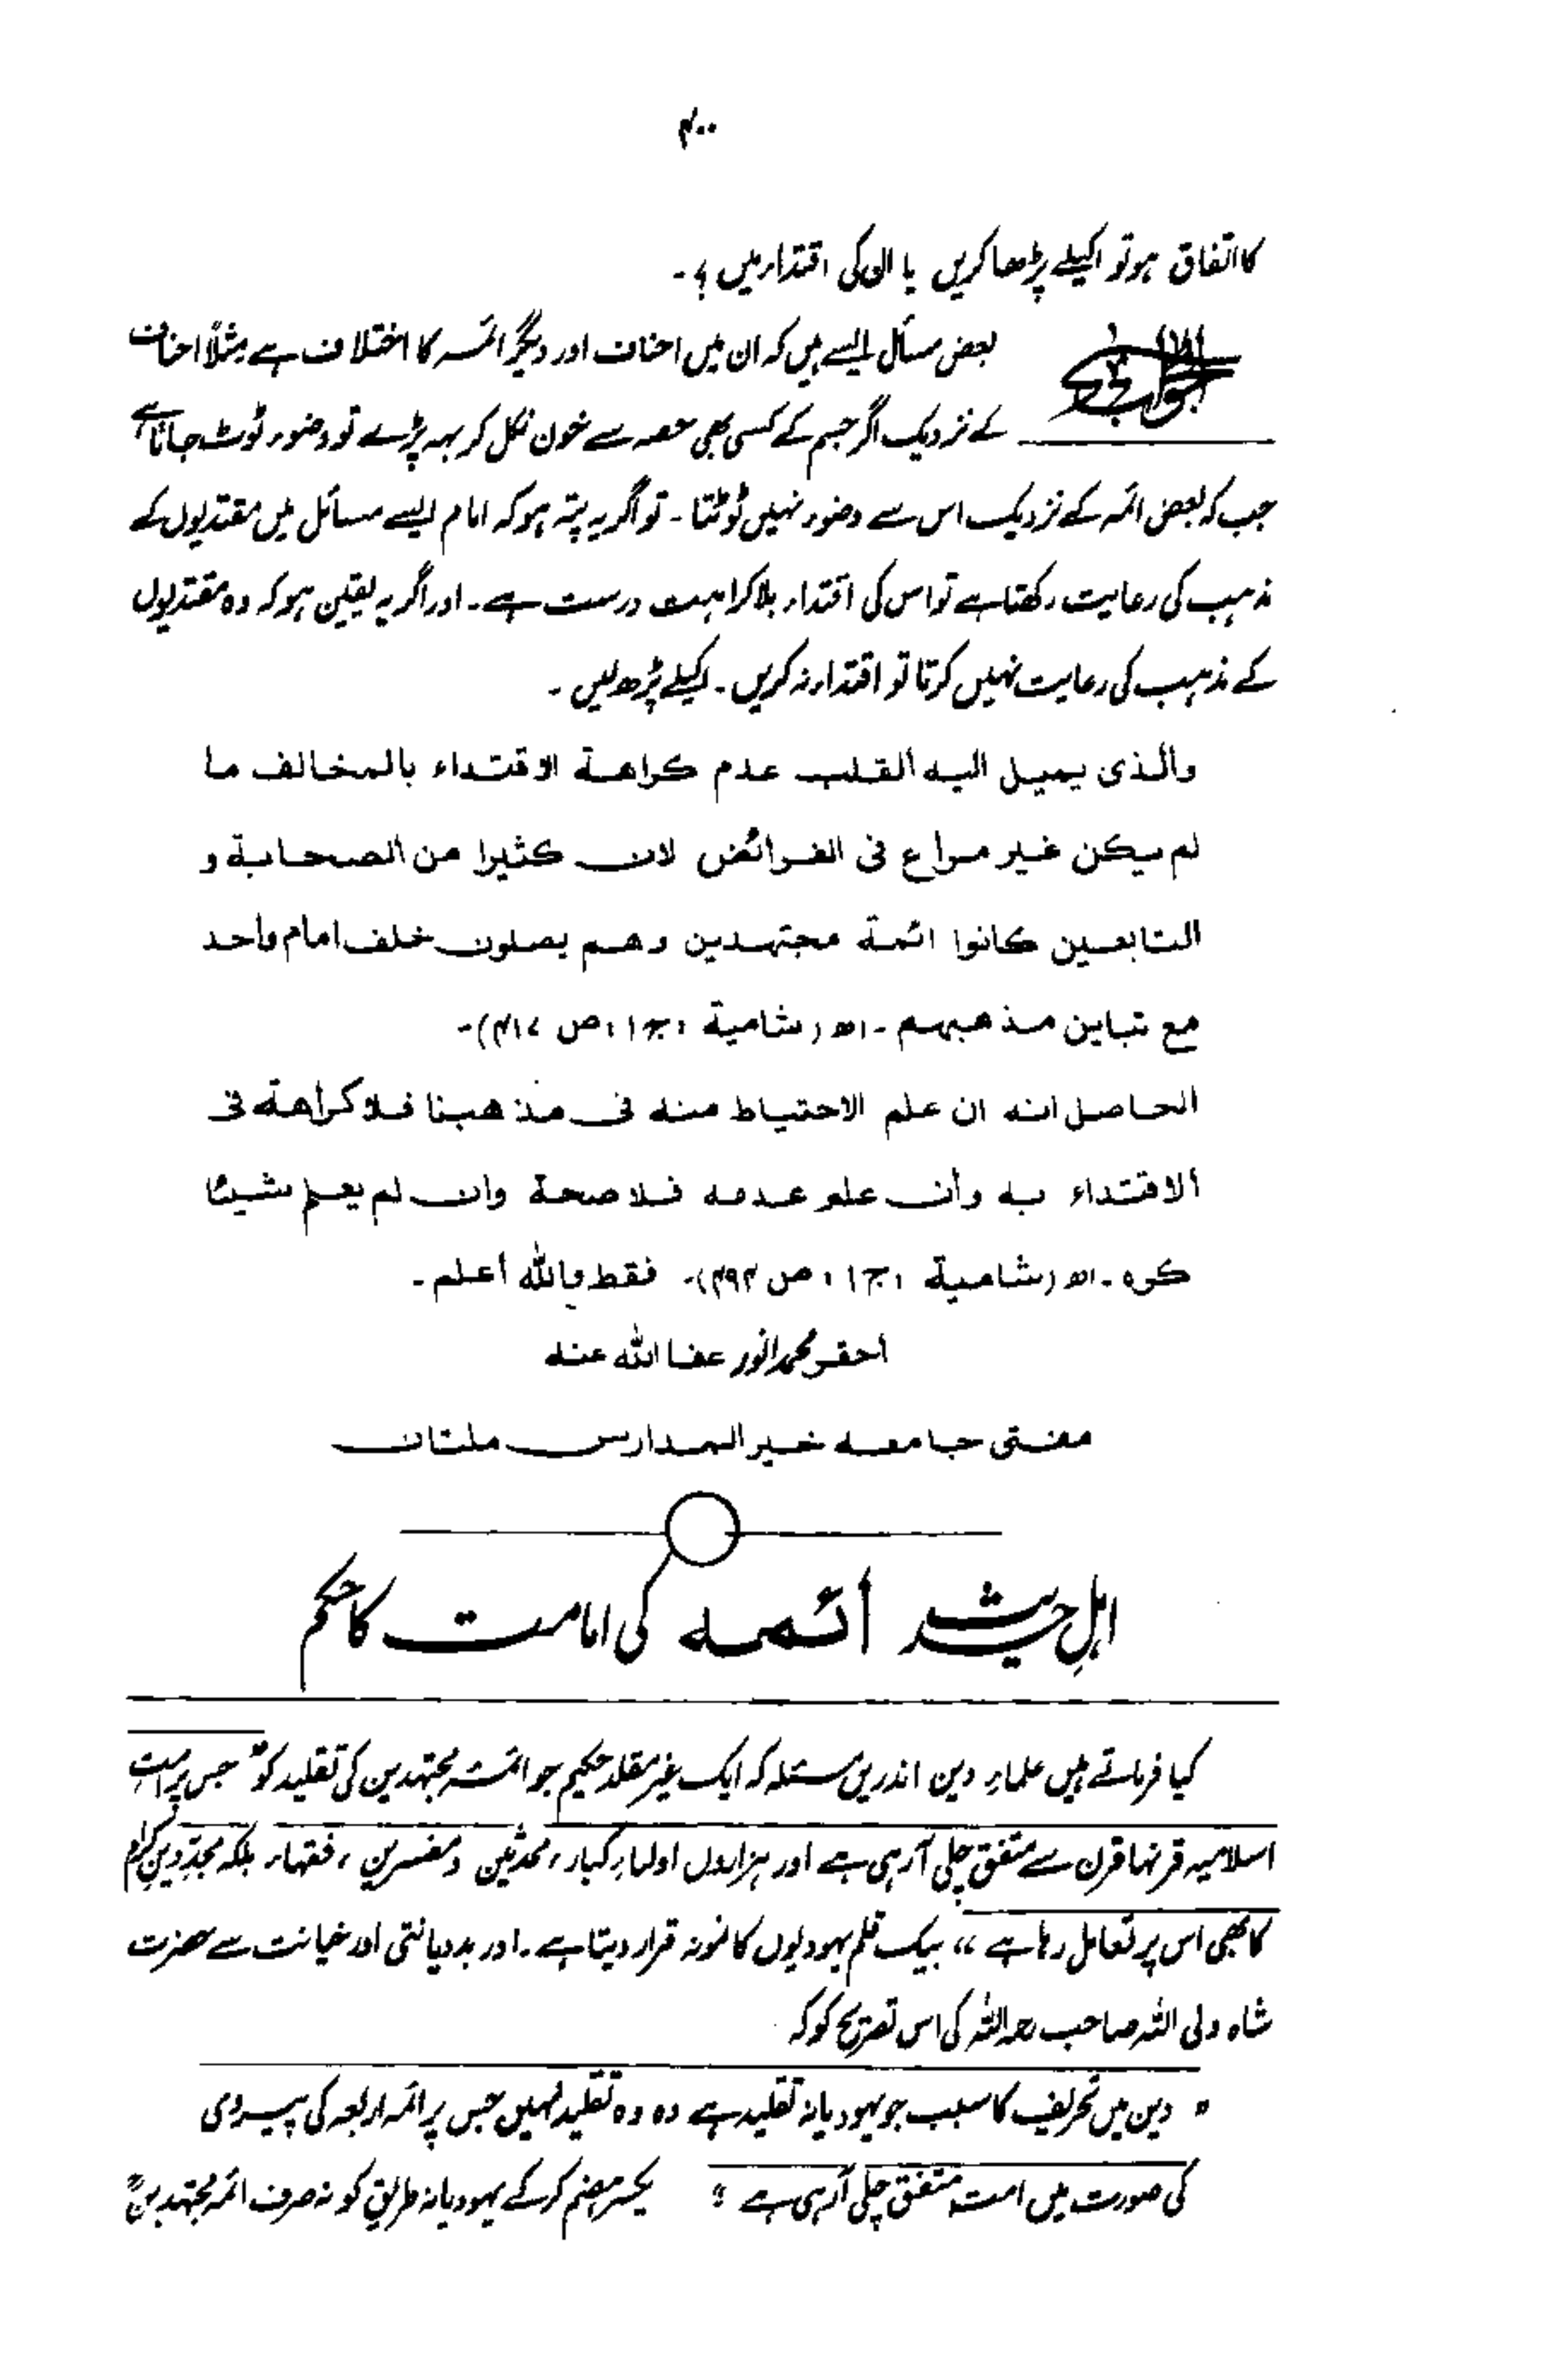 ۴۰۰
کا اتفاق ہو تو اکیلے پڑھا کریں یا ان کی اقتداء میں ؟۔
الجواب
بعض مسائل ایسے ہیں کہ ان میں احناف اور دیگر ائمہ کا اختلاف ہے مثلاً احناف
کے نزدیک اگر جسم کے کسی بھی حصہ سے خون نکل کر بہہ پڑے تو وضوء ٹوٹ جاتا ہے
جب کہ بعض ائمہ کے نزدیک اس سے وضوء نہیں ٹوٹتا۔ تو اگر یہ پتہ ہو کہ امام ایسے مسائل میں مقتدیوں کے
مذہب کی رعایت رکھتا ہے تو اس کی اقتداء بلا کراہت درست ہے۔ اور اگر یہ یقین ہو کہ وہ مقتدیوں
کے مذہب کی رعایت نہیں کرتا تو اقتداء نہ کریں۔ اکیلے پڑھ لیں ۔
والذی یمیل الیه القلب عدم کراهة الاقتداء بالمخالف ما
لم یکن غیر مراع فی الفرائض لان کثیرا من الصحابة و
التابعین کانوا ائمة مجتهدین وهم یصلون خلف امام واحد
مع تباین مذهبهم ۔ اھ (شامیة ، ج۱ ، ص ۴۱۷)۔
الحاصل انه ان علم الاحتیاط منه فی مذهبنا فلا کراهة فی
الاقتداء به وأن علم عدمه فلا صحة وان لم یعلم شیئا
کره ۔ اھ (شامیة ، ج۱ ، ص ۴۹۴)۔ فقط والله أعلم ۔
احقر محمد انور عفا الله عنه
مفتی جامعه خیر المدارس ملتان
اہلِ حدیث أئمه کی امامت کا حکم
کیا فرماتے ہیں علماءِ دین اندریں مسئلہ کہ ایک غیر مقلد حکیم جو ائمہ مجتہدین کی تقلید کو " جس پر امت
اسلامیہ قرنہا قرن سے متفق چلی آ رہی ہے اور ہزاروں اولیاءِ کبار ، محدثین و مفسرین ، فقہاء بلکہ مجدّدین کرام
کا بھی اس پر تعامل رہا ہے " بیک قلم یہودیوں کا نمونہ قرار دیتا ہے۔ اور بد دیانتی اور خیانت سے حضرت
شاہ ولی اللہ صاحب رحمہ اللہ کی اس تصریح کو کہ
" دین میں تحریف کا سبب جو یہودیانہ تقلید ہے وہ وہ تقلید نہیں جس پر ائمہ اربعہ کی پیروی
کی صورت میں امت متفق چلی آ رہی ہے " یکسر ہضم کر کے یہودیانہ طریق کو نہ صرف ائمہ مجتہدینؒ